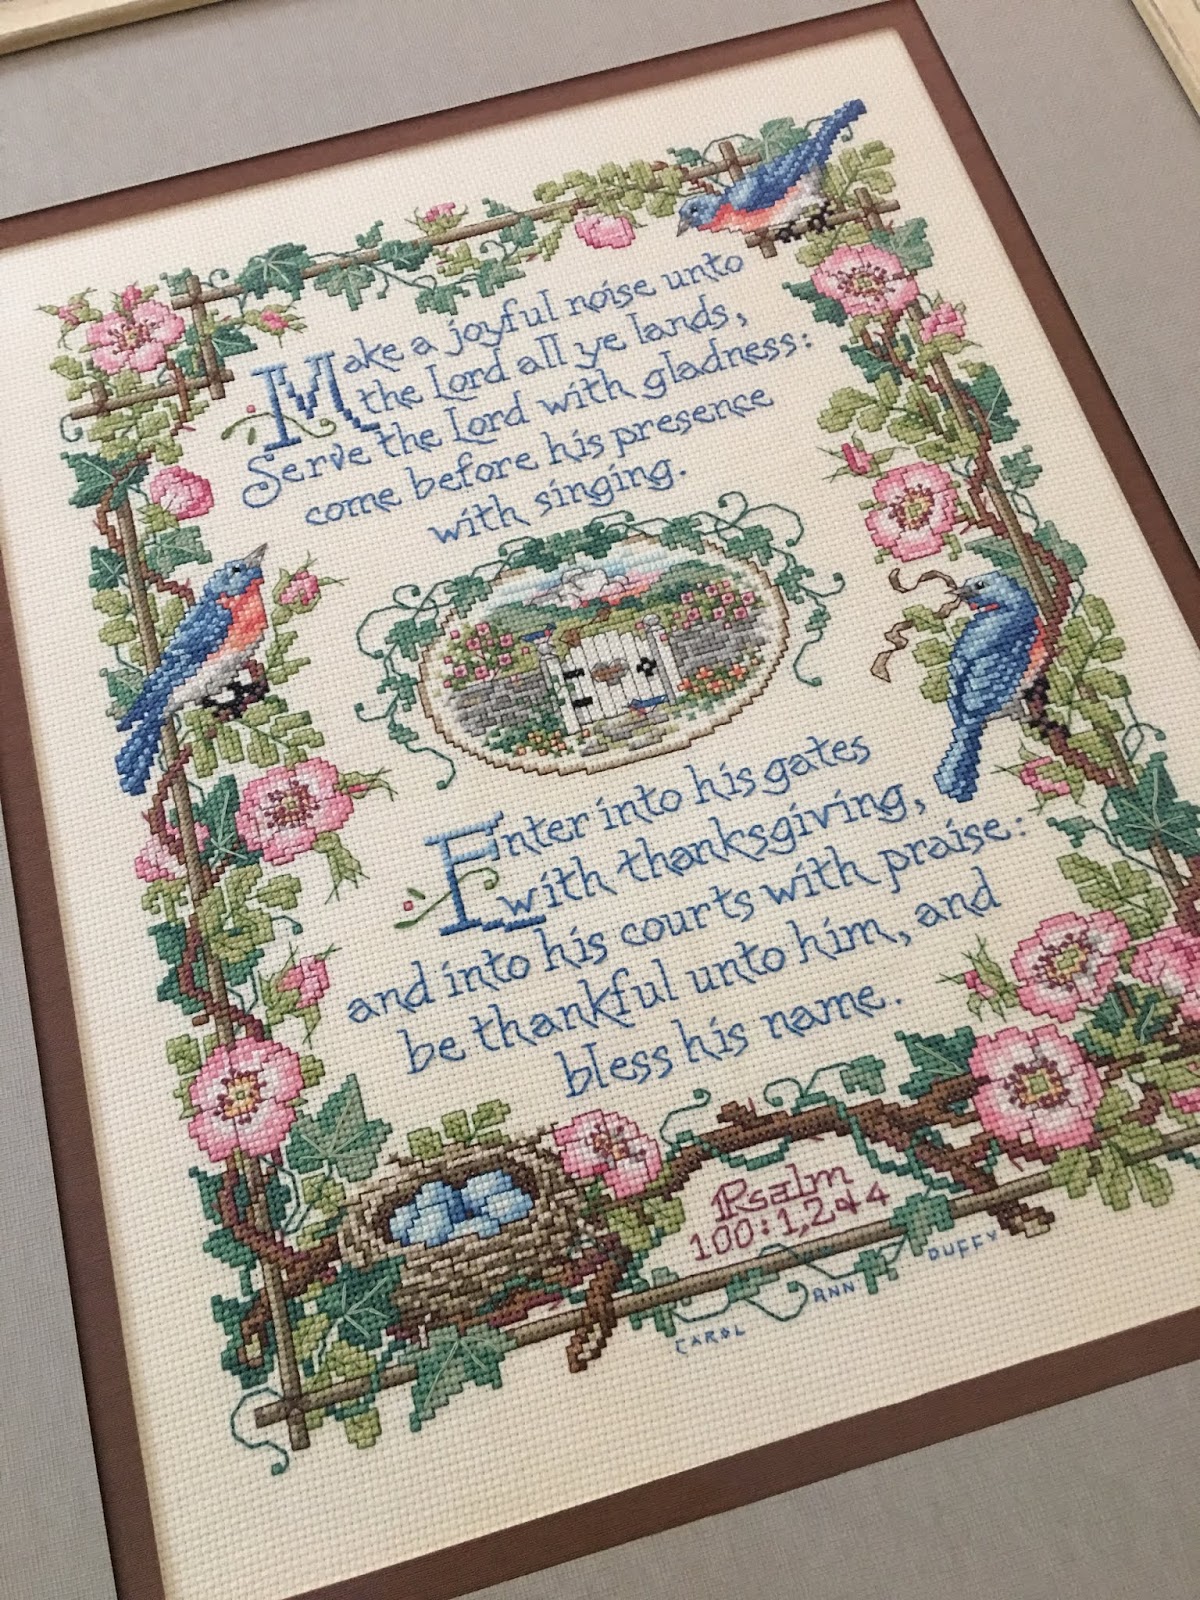 Make a joyful noise unto
the Lord all ye lands,
Serve the Lord with gladness:
come before his presence
with singing.
Enter into his gates
with thanksgiving,
and into his courts with praise:
be thankful unto him, and
bless his name.
Psalm
100:1,2&4
CAROL ANN DUFFY